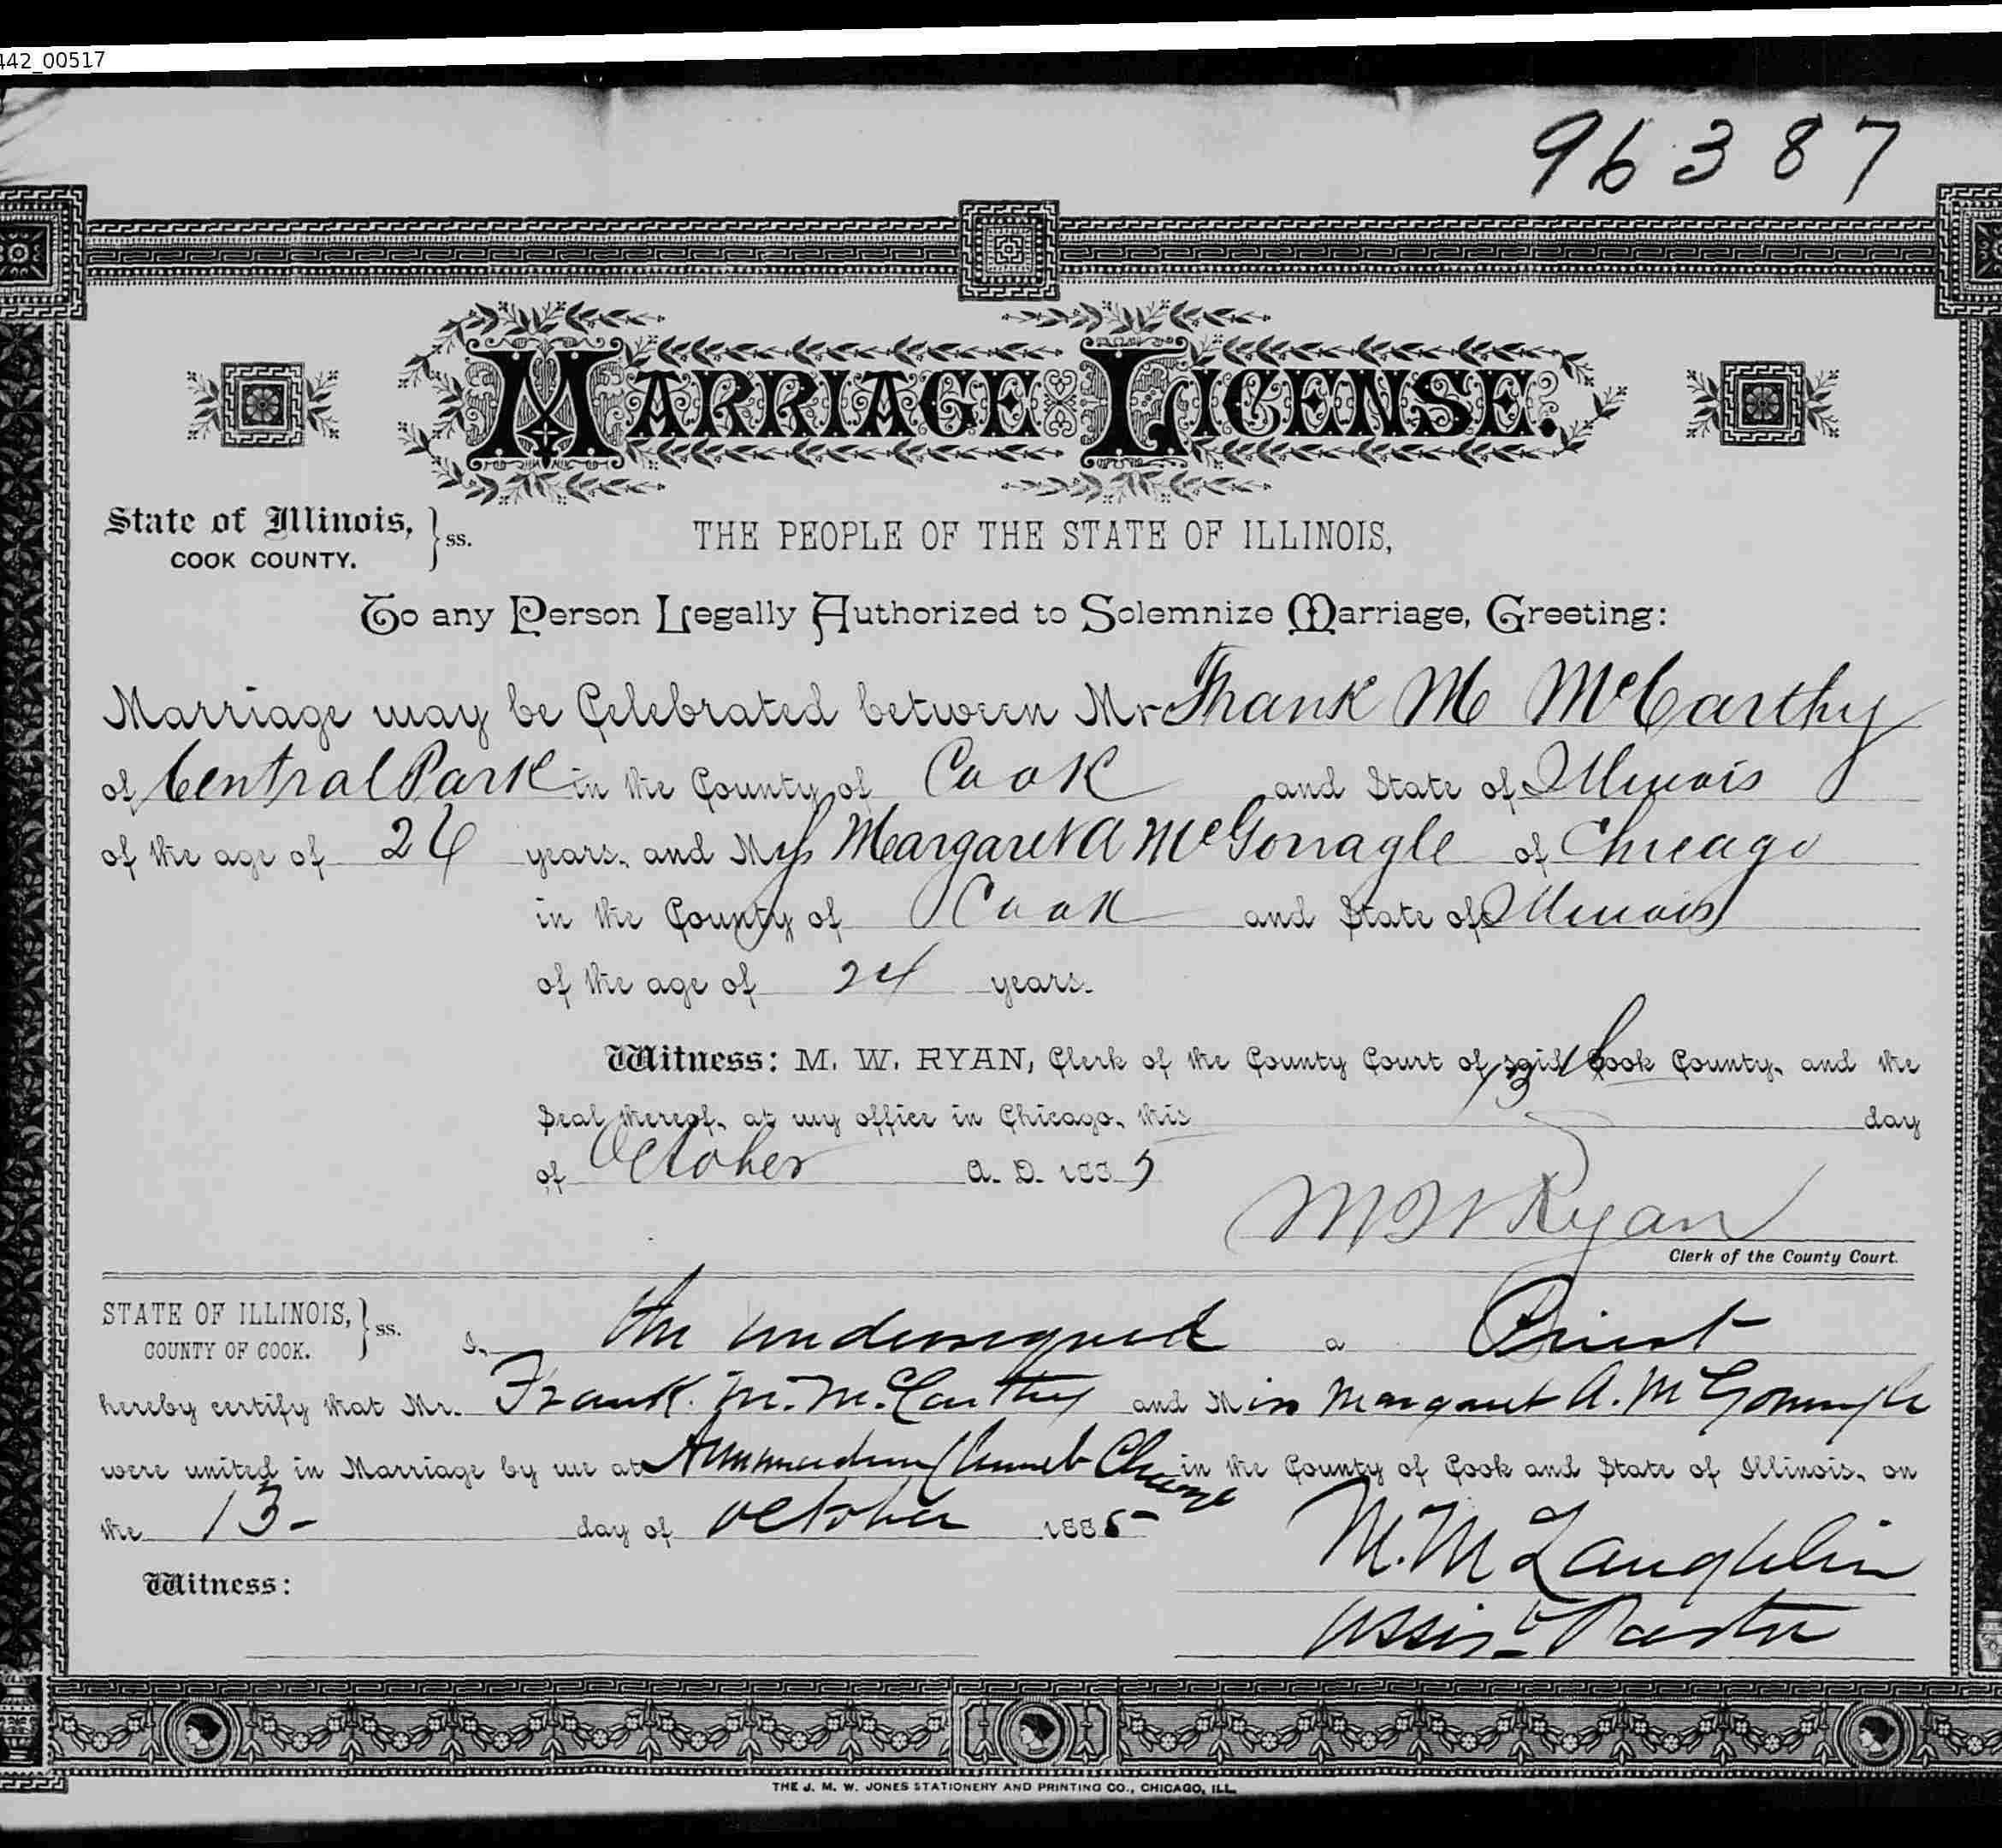 442_00517
96387
MARRIAGE LICENSE.
State of Illinois, } ss.
COOK COUNTY.
THE PEOPLE OF THE STATE OF ILLINOIS,
To any Person Legally Authorized to Solemnize Marriage, Greeting:
Marriage may be Celebrated between Mr Frank M McCarthy
of Central Park in the County of Cook and State of Illinois
of the age of 26 years, and Miss Margaret A McGonagle of Chicago
in the County of Cook and State of Illinois
of the age of 24 years.
Witness: M. W. RYAN, Clerk of the County Court of said Cook County, and the
Seal thereof, at my office in Chicago, this 13th day
of October A. D. 1885
M W Ryan
Clerk of the County Court.
STATE OF ILLINOIS, } ss.
COUNTY OF COOK.
I, the undersigned a Priest
hereby certify that Mr. Frank. M. McCarthy and Miss Margaret A. McGonagle
were united in Marriage by me at Annunciation Church Chicago in the County of Cook and State of Illinois, on
the 13- day of October 1885-
M. McLaughlin
Witness:
Assist Pastor
THE J. M. W. JONES STATIONERY AND PRINTING CO., CHICAGO, ILL.